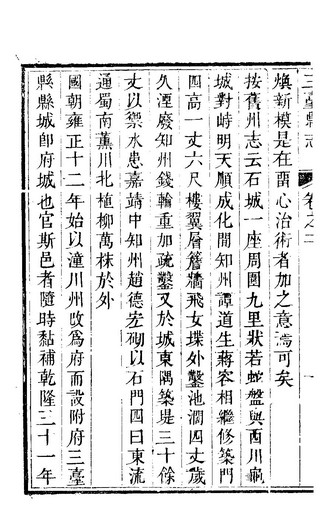 三臺縣志 卷之二 一
煥新模是在畱心治術者加之意濤可矣
按舊州志云石城一座周圍九里狀若蛇盤與西川龜
城對峙明天順成化間知州譚道生蔣容相繼修築門
四高一丈六尺樓翼層簷牆飛女堞外鑿池濶四丈歲
久湮廢知州錢輪重加疏鑿又於城東隅築堤三十餘
丈以禦水患嘉靖中知州趙德宏砌以石門四曰東流
通蜀南薰川北植柳萬株於外
國朝雍正十二年始以潼川州改為府而設附府三臺
縣縣城卽府城也官斯邑者隨時黏補乾隆三十一年